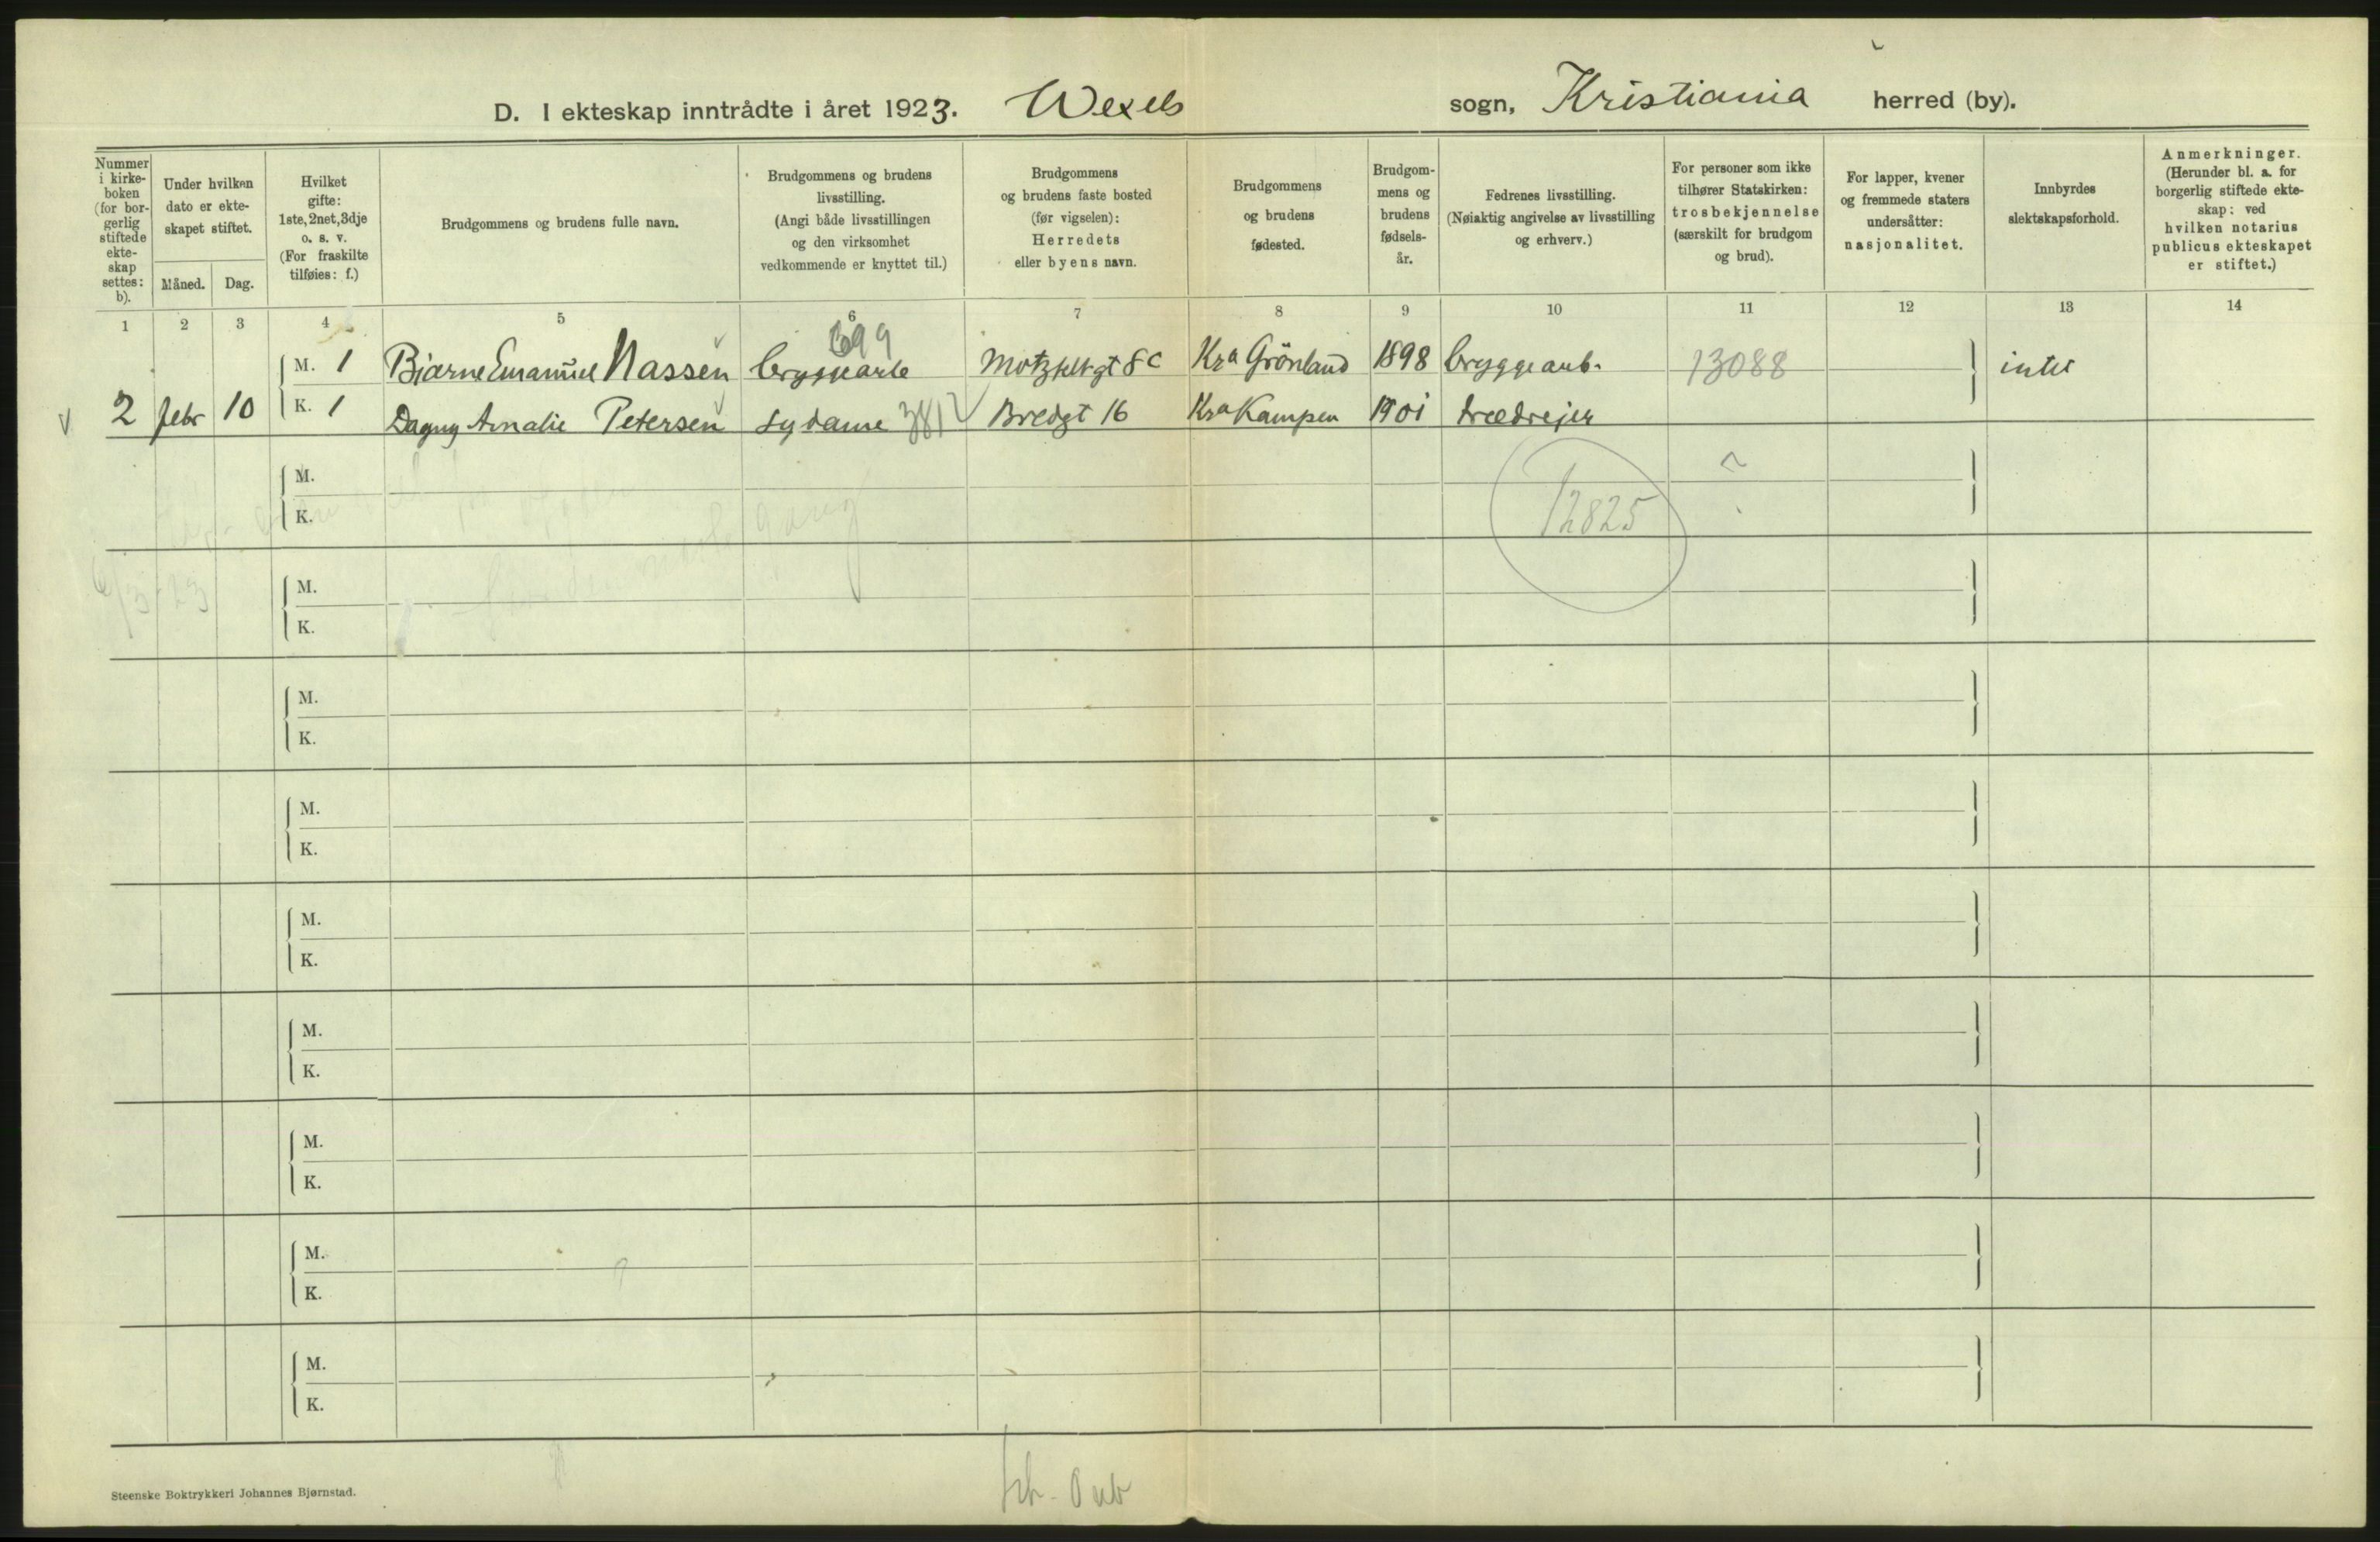 D. I ekteskap inntrådte i året 1923. Wexels sogn, Kristiania herred (by).
Nummer i kirke- boken (for bor- gerlig stiftede ekte- skap settes: b).
Under hvilken dato er ekte- skapet stiftet.
Måned. Dag.
Hvilket gifte: 1ste, 2net, 3dje o. s. v. (For fraskilte tilføies: f.)
Brudgommens og brudens fulle navn.
Brudgommens og brudens livsstilling. (Angi både livsstillingen og den virksomhet vedkommende er knyttet til.)
Brudgommens og brudens faste bosted (før vigselen): Herredets eller byens navn.
Brudgommens og brudens fødested.
Brudgom- mens og brudens fødsels- år.
Fedrenes livsstilling. (Nøiaktig angivelse av livsstilling og erhverv.)
For personer som ikke tilhører Statskirken: trosbekjennelse (særskilt for brudgom og brud).
For lapper, kvener og fremmede staters undersåtter: nasjonalitet.
Innbyrdes slektskapsforhold.
Anmerkninger. (Herunder bl. a. for borgerlig stiftede ekte- skap: ved hvilken notarius publicus ekteskapet er stiftet.)
1 2 3 4 5 6 7 8 9 10 11 12 13 14
699
M. 1 Bjarne Emanuel Nassen bryggearb Motzfeltgt 8c Kra Grönland 1898 bryggearb. 13088 intet
2 febr 10 K. 1 Dagny Amalie Petersen sydame 381 Bredgt 16 Kra Kampen 1901 trædrejer
M.
K.
12825 ?
6/3 23
M.
K.
M.
K.
M.
K.
M.
K.
M.
K.
M.
K.
M.
K.
M.
K.
Steenske Boktrykkeri Johannes Bjørnstad.